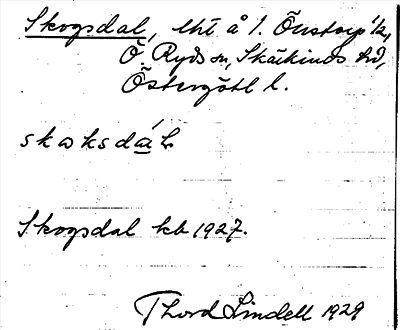 Skogsdal, lht å 1. Örstorp 1/2,
Ö. Ryds sn, Skärkinds hd,
Östergötl l.
skωksdáL
Skogsdal kb 1927.
Thord Lindell 1929